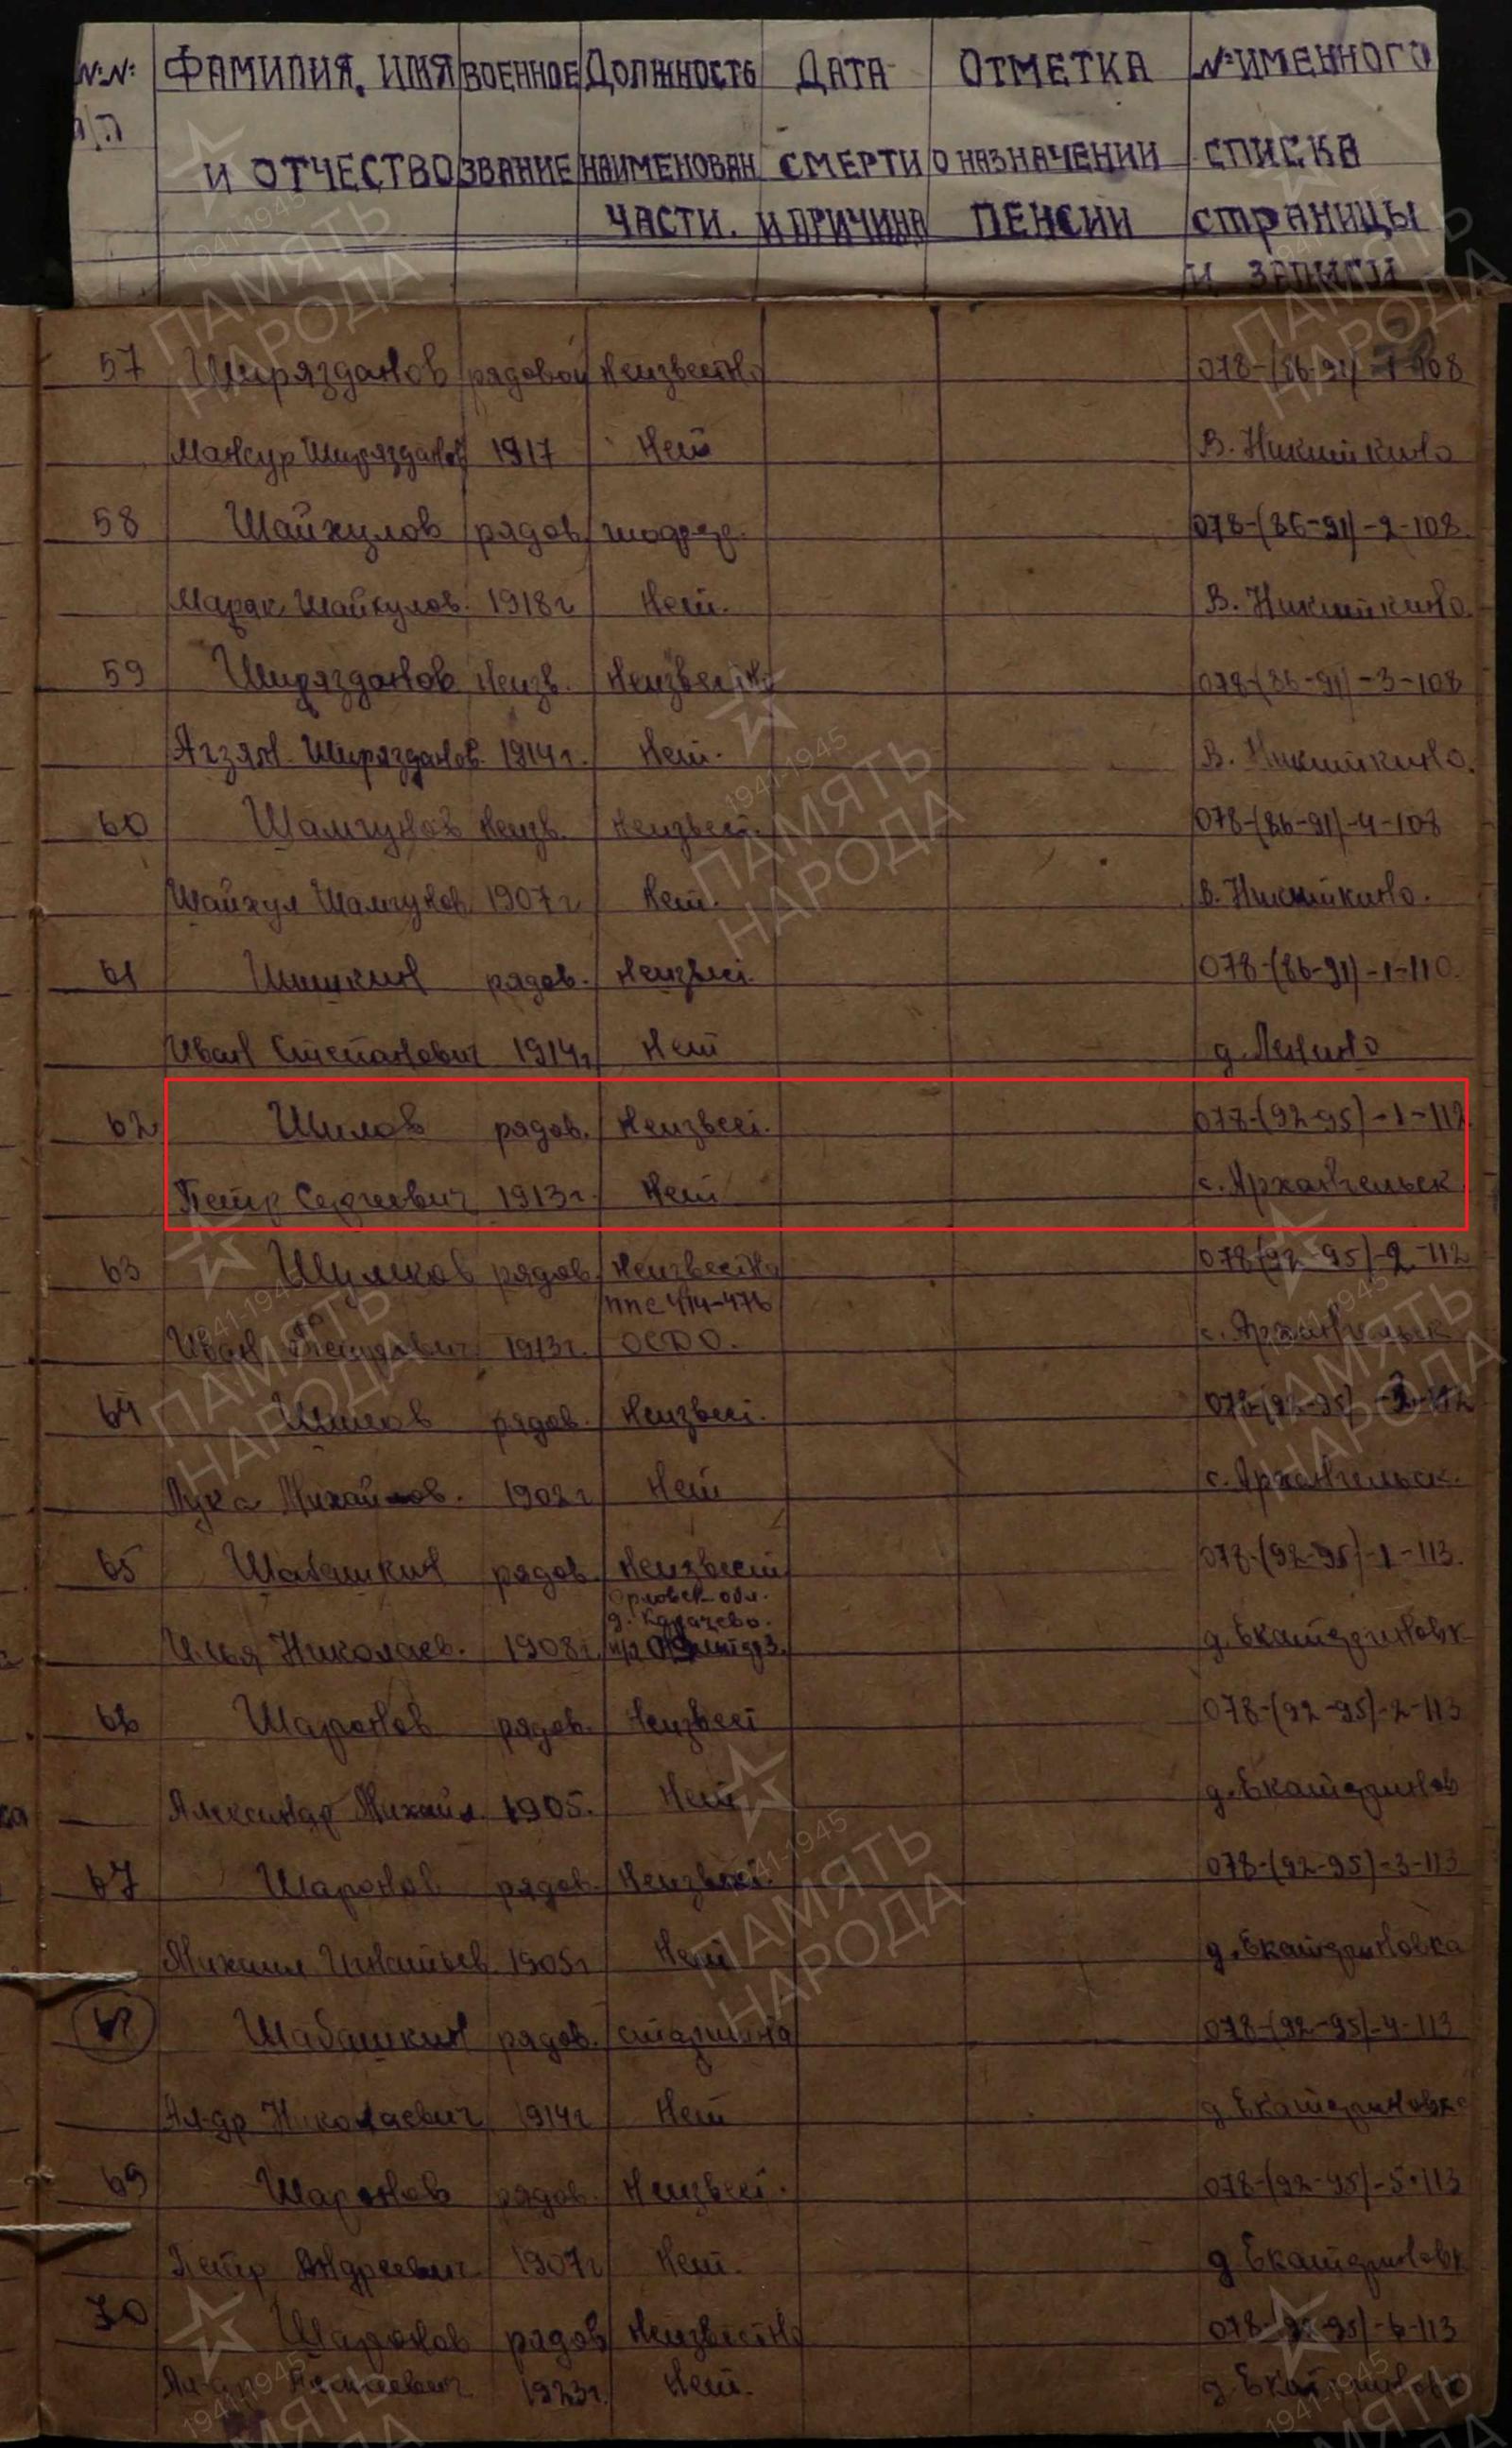 №№ ФАМИЛИЯ, ИМЯ ВОЕННОЕ ДОЛЖНОСТЬ ДАТА ОТМЕТКА № ИМЕННОГО
п/п И ОТЧЕСТВО ЗВАНИЕ НАИМЕНОВАН СМЕРТИ О НАЗНАЧЕНИИ СПИСКА
ЧАСТИ. И ПРИЧИНА ПЕНСИИ СТРАНИЦЫ
И ЗАПИСИ
57 Ширязданов рядовой Неизвестно 078-(86-91)-1-108
Мансур Ширязданов 1917 Нет В. Никиткино
58 Шайхулов рядов. 078-(86-91)-2-108
Шайхулов. 1918г Нет. В. Никиткино.
59 Ширязданов Неизв. Неизвестно 078-(86-91)-3-108
Агзян Ширязданов. 1914г. Нет. В. Никиткино.
60 Шамгунов Неизв. Неизвест. 078-(86-91)-4-108
Шайхул Шамгунов 1907г Нет. В. Никиткино.
61 Шишкин рядов. Неизвест. 078-(86-91)-1-110.
Иван Степанович 1914г Нет д. Ленино
62 Шилов рядов. Неизвест. 077-(92-95)-1-112
Петр Сергеевич 1913г. Нет с. Архангельск
63 Шумков рядов. Неизвестно 078(92-95)-2-112
ппс 414-476
Иван Петрович 1913г. с. Архангельск
64 Шилов рядов. Неизвест. 078-(92-95)-3-112
Лука Михайлов. 1902г Нет с. Архангельск.
65 Шабашкин рядов. Неизвест 078-(92-95)-1-113.
Орловск-обл.
д. Карачево.
Илья Николаев. 1908г. д. Екатериновк
66 Шаронов рядов. Неизвест 078-(92-95)-2-113
Александр Михайл. 1905. Нет д. Екатеринов
67 Шаронов рядов. Неизвест. 078-(92-95)-3-113
Михаил Игнатьев 1905г Нет д. Екатериновка
68 Шабашкин рядов. старшина 078-(92-95)-4-113
Ал-др Николаевич 1914г Нет д. Екатериновка
69 Шаронов рядов. Неизвест. 078-(92-95)-5-113
Петр Андреевич 1907г Нет. д. Екатериновк
70 Шаронов рядов Неизвестно 078-(92-95)-6-113
1923г. Нет. д. Екатериновк
1941-1945
ПАМЯТЬ
НАРОДА